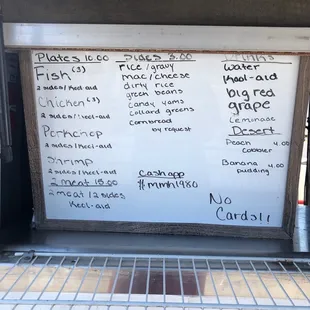 Plates 10.00
Fish (3)
2 sides/Kool-aid
Chicken (3)
2 sides/Kool-aid
Porkchop
2 sides/Kool-aid
Shrimp
2 sides/Kool-aid
2 meat 15.00
2 meat/2 sides
Kool-aid
Sides 3.00
rice/gravy
mac/cheese
dirty rice
green beans
candy yams
collard greens
Cornbread
by request
Cashapp
$mmh1980
Drinks
Water
Kool-aid
big red
grape
Lemonade
Desert
Peach 4.00
cobbler
Banana 4.00
pudding
No
Cards!!